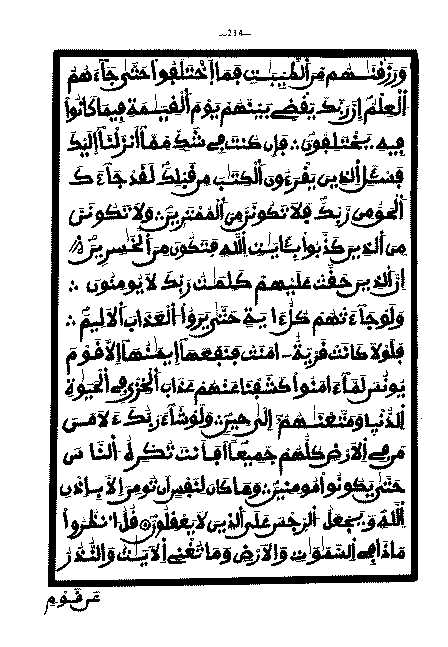 —214—
وَرَزَقْنَٰهُم مِّنَ ٱلطَّيِّبَٰتِ فَمَا ٱخْتَلَفُوا۟ حَتَّىٰ جَآءَهُمُ
ٱلْعِلْمُ إِنَّ رَبَّكَ يَقْضِى بَيْنَهُمْ يَوْمَ ٱلْقِيَٰمَةِ فِيمَا كَانُوا۟
فِيهِ يَخْتَلِفُونَ ؞ فَإِن كُنتَ فِى شَكٍّ مِّمَّآ أَنزَلْنَآ إِلَيْكَ
فَسْـَٔلِ ٱلَّذِينَ يَقْرَءُونَ ٱلْكِتَٰبَ مِن قَبْلِكَ لَقَدْ جَآءَكَ
ٱلْحَقُّ مِن رَّبِّكَ فَلَا تَكُونَنَّ مِنَ ٱلْمُمْتَرِينَ ؞ وَلَا تَكُونَنَّ
مِنَ ٱلَّذِينَ كَذَّبُوا۟ بِـَٔايَٰتِ ٱللَّهِ فَتَكُونَ مِنَ ٱلْخَٰسِرِينَ ؞
إِنَّ ٱلَّذِينَ حَقَّتْ عَلَيْهِمْ كَلِمَٰتُ رَبِّكَ لَا يُومِنُونَ ؞
وَلَوْ جَآءَتْهُمْ كُلُّ ءَايَةٍ حَتَّىٰ يَرَوُا۟ ٱلْعَذَابَ ٱلْأَلِيمَ ؞
فَلَوْلَا كَانَتْ قَرْيَةٌ ـ امَنَتْ فَنَفَعَهَآ إِيمَٰنُهَآ إِلَّا قَوْمَ
يُونُسَ لَمَّآ ءَامَنُوا۟ كَشَفْنَا عَنْهُمْ عَذَابَ ٱلْخِزْىِ فِى ٱلْحَيَوٰةِ
ٱلدُّنْيَا وَمَتَّعْنَٰهُمُۥٓ إِلَىٰ حِينٍ ؞ وَلَوْ شَآءَ رَبُّكَ ءَلَامَنَ
مَن فِى ٱلْأَرْضِ كُلُّهُمْ جَمِيعًا أَفَأَنتَ تُكْرِهُ ٱلنَّاسَ
حَتَّىٰ يَكُونُوا۟ مُومِنِينَ ؞ وَمَا كَانَ لِنَفْسٍ أَن تُومِنَ إِلَّا بِإِذْنِ
ٱللَّهِ وَيَجْعَلُ ٱلرِّجْسَ عَلَى ٱلَّذِينَ لَا يَعْقِلُونَ ؞ قُلُ ٱنظُرُوا۟
مَاذَا فِى ٱلسَّمَٰوَٰتِ وَٱلْأَرْضِ وَمَا تُغْنِى ٱلْأَيَٰتُ وَٱلنُّذُرُ
عَن قَوْمٍ